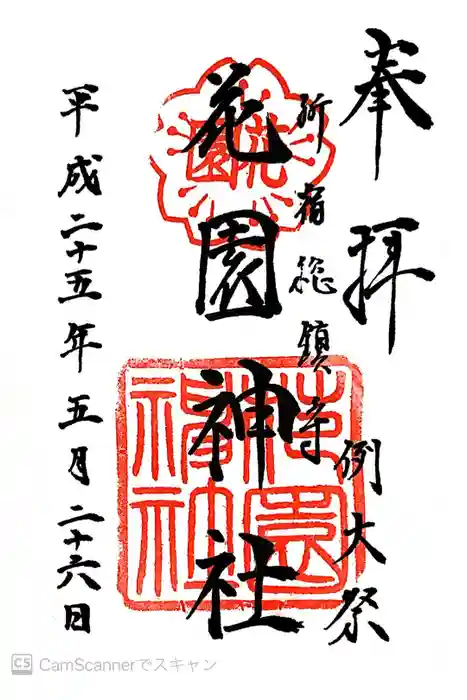 奉拝
例大祭
新宿総鎮守
花園神社
平成二十五年五月二十六日
花園
花園神社
CS CamScannerでスキャン